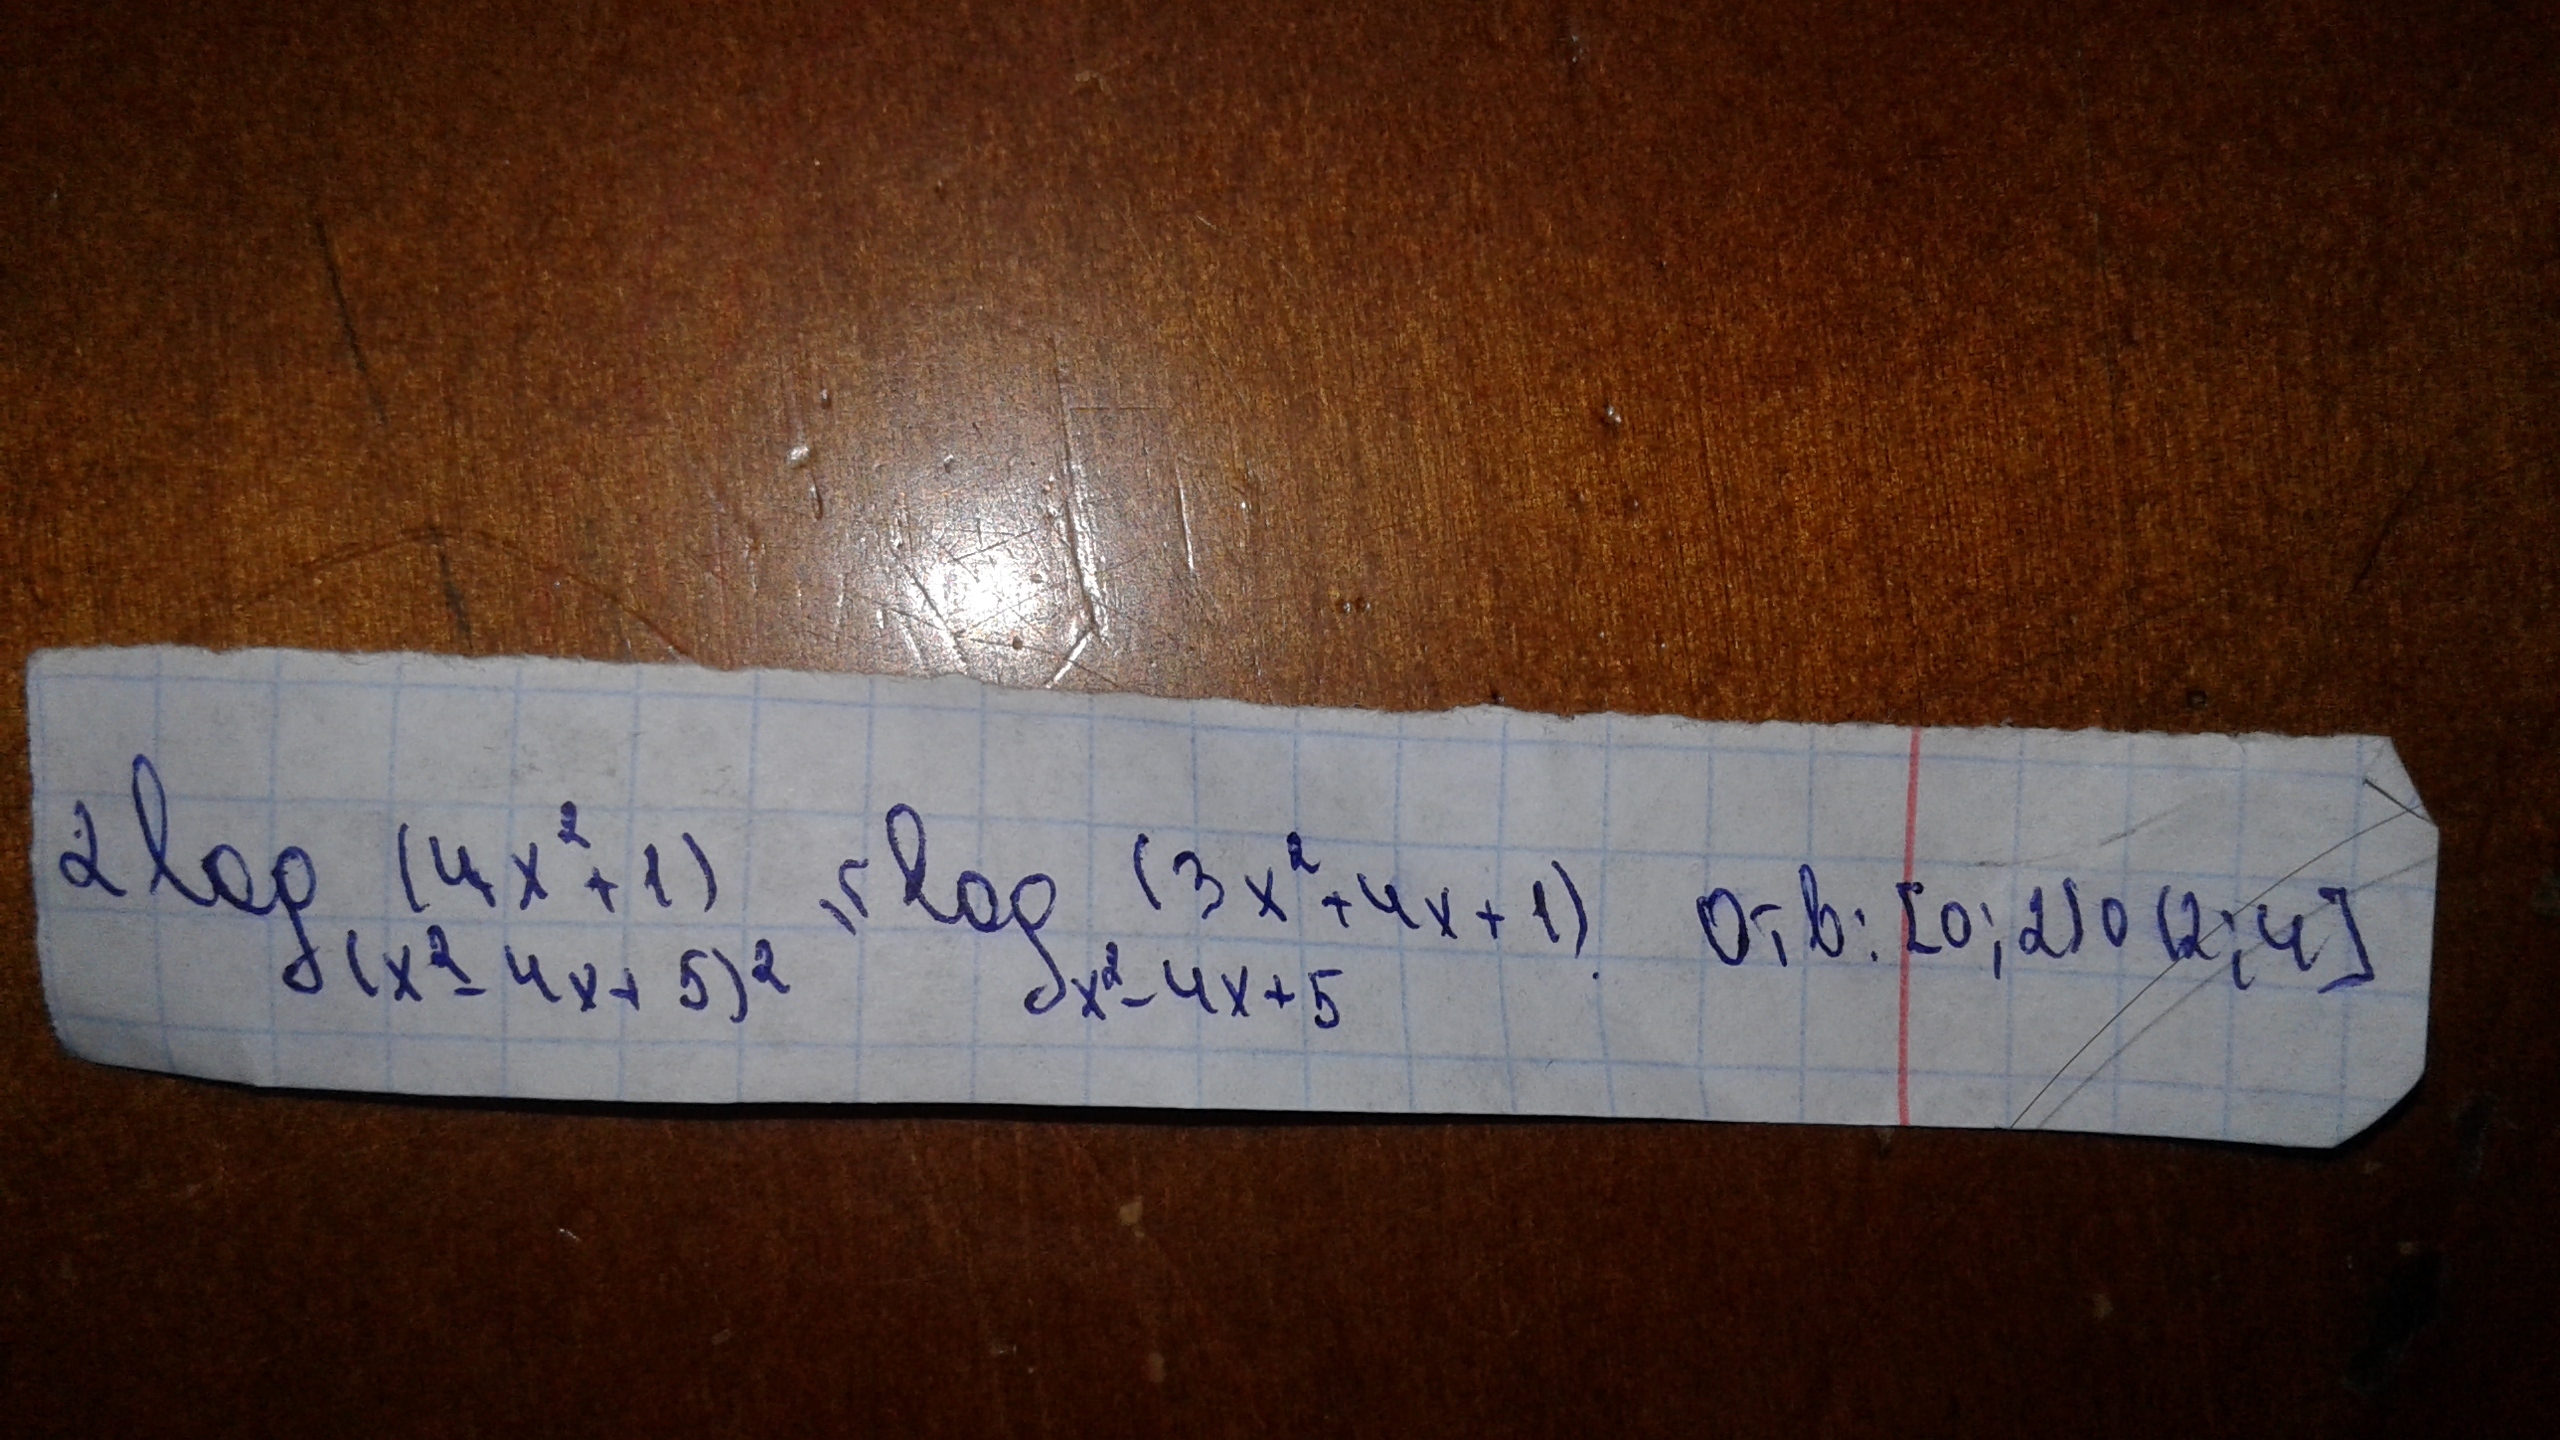 2 log (x² - 4x + 5)² (4x² + 1) ≤ log x² - 4x + 5 (3x² + 4x + 1). Отв: [0; 2) ∪ (2; 4]